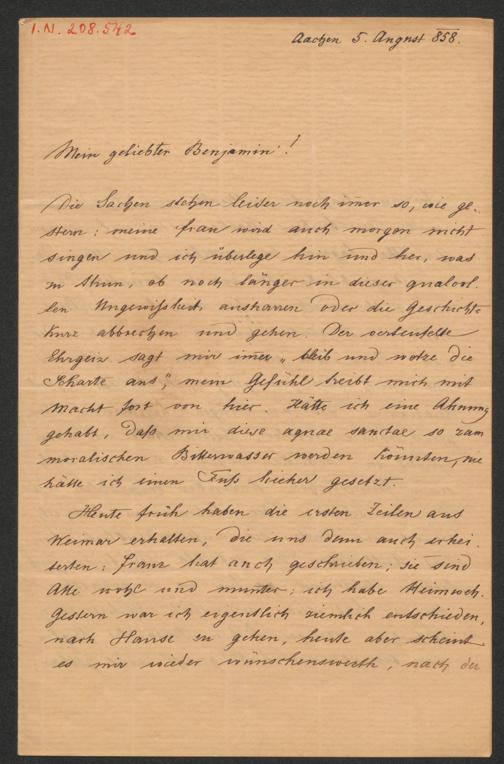 I.N. 208.542
Aachen 5. August 858.
Mein geliebter Benjamin!
Die Sachen stehen leider noch imer so, wie ge-
stern: meine Frau wird auch morgen nicht
singen und ich überlege hin und her, was
zu thun, ob noch länger in dieser qualvol-
len Ungewißheit ausharren oder die Geschichte
kurz abbrechen und gehen. Der verteufelte
Ehrgeiz sagt mir imer „bleib und wetze die
Scharte aus", mein Gefühl treibt mich mit
Macht fort von hier. Hätte ich eine Ahnung
gehabt, daß mir diese aquae sanctae so zum
moralischen Bitterwasser werden könnten, nie
hätte ich einen Fuß hieher gesetzt.
Heute früh haben die ersten Zeilen aus
Weimar erhalten, die uns denn auch erhei-
terten: Franz hat auch geschrieben; sie sind
Alle wohl und munter; ich habe Heimweh.
Gestern war ich eigentlich ziemlich entschieden,
nach Hause zu gehen, heute aber scheint
es mir wieder wünschenswerth, nach der